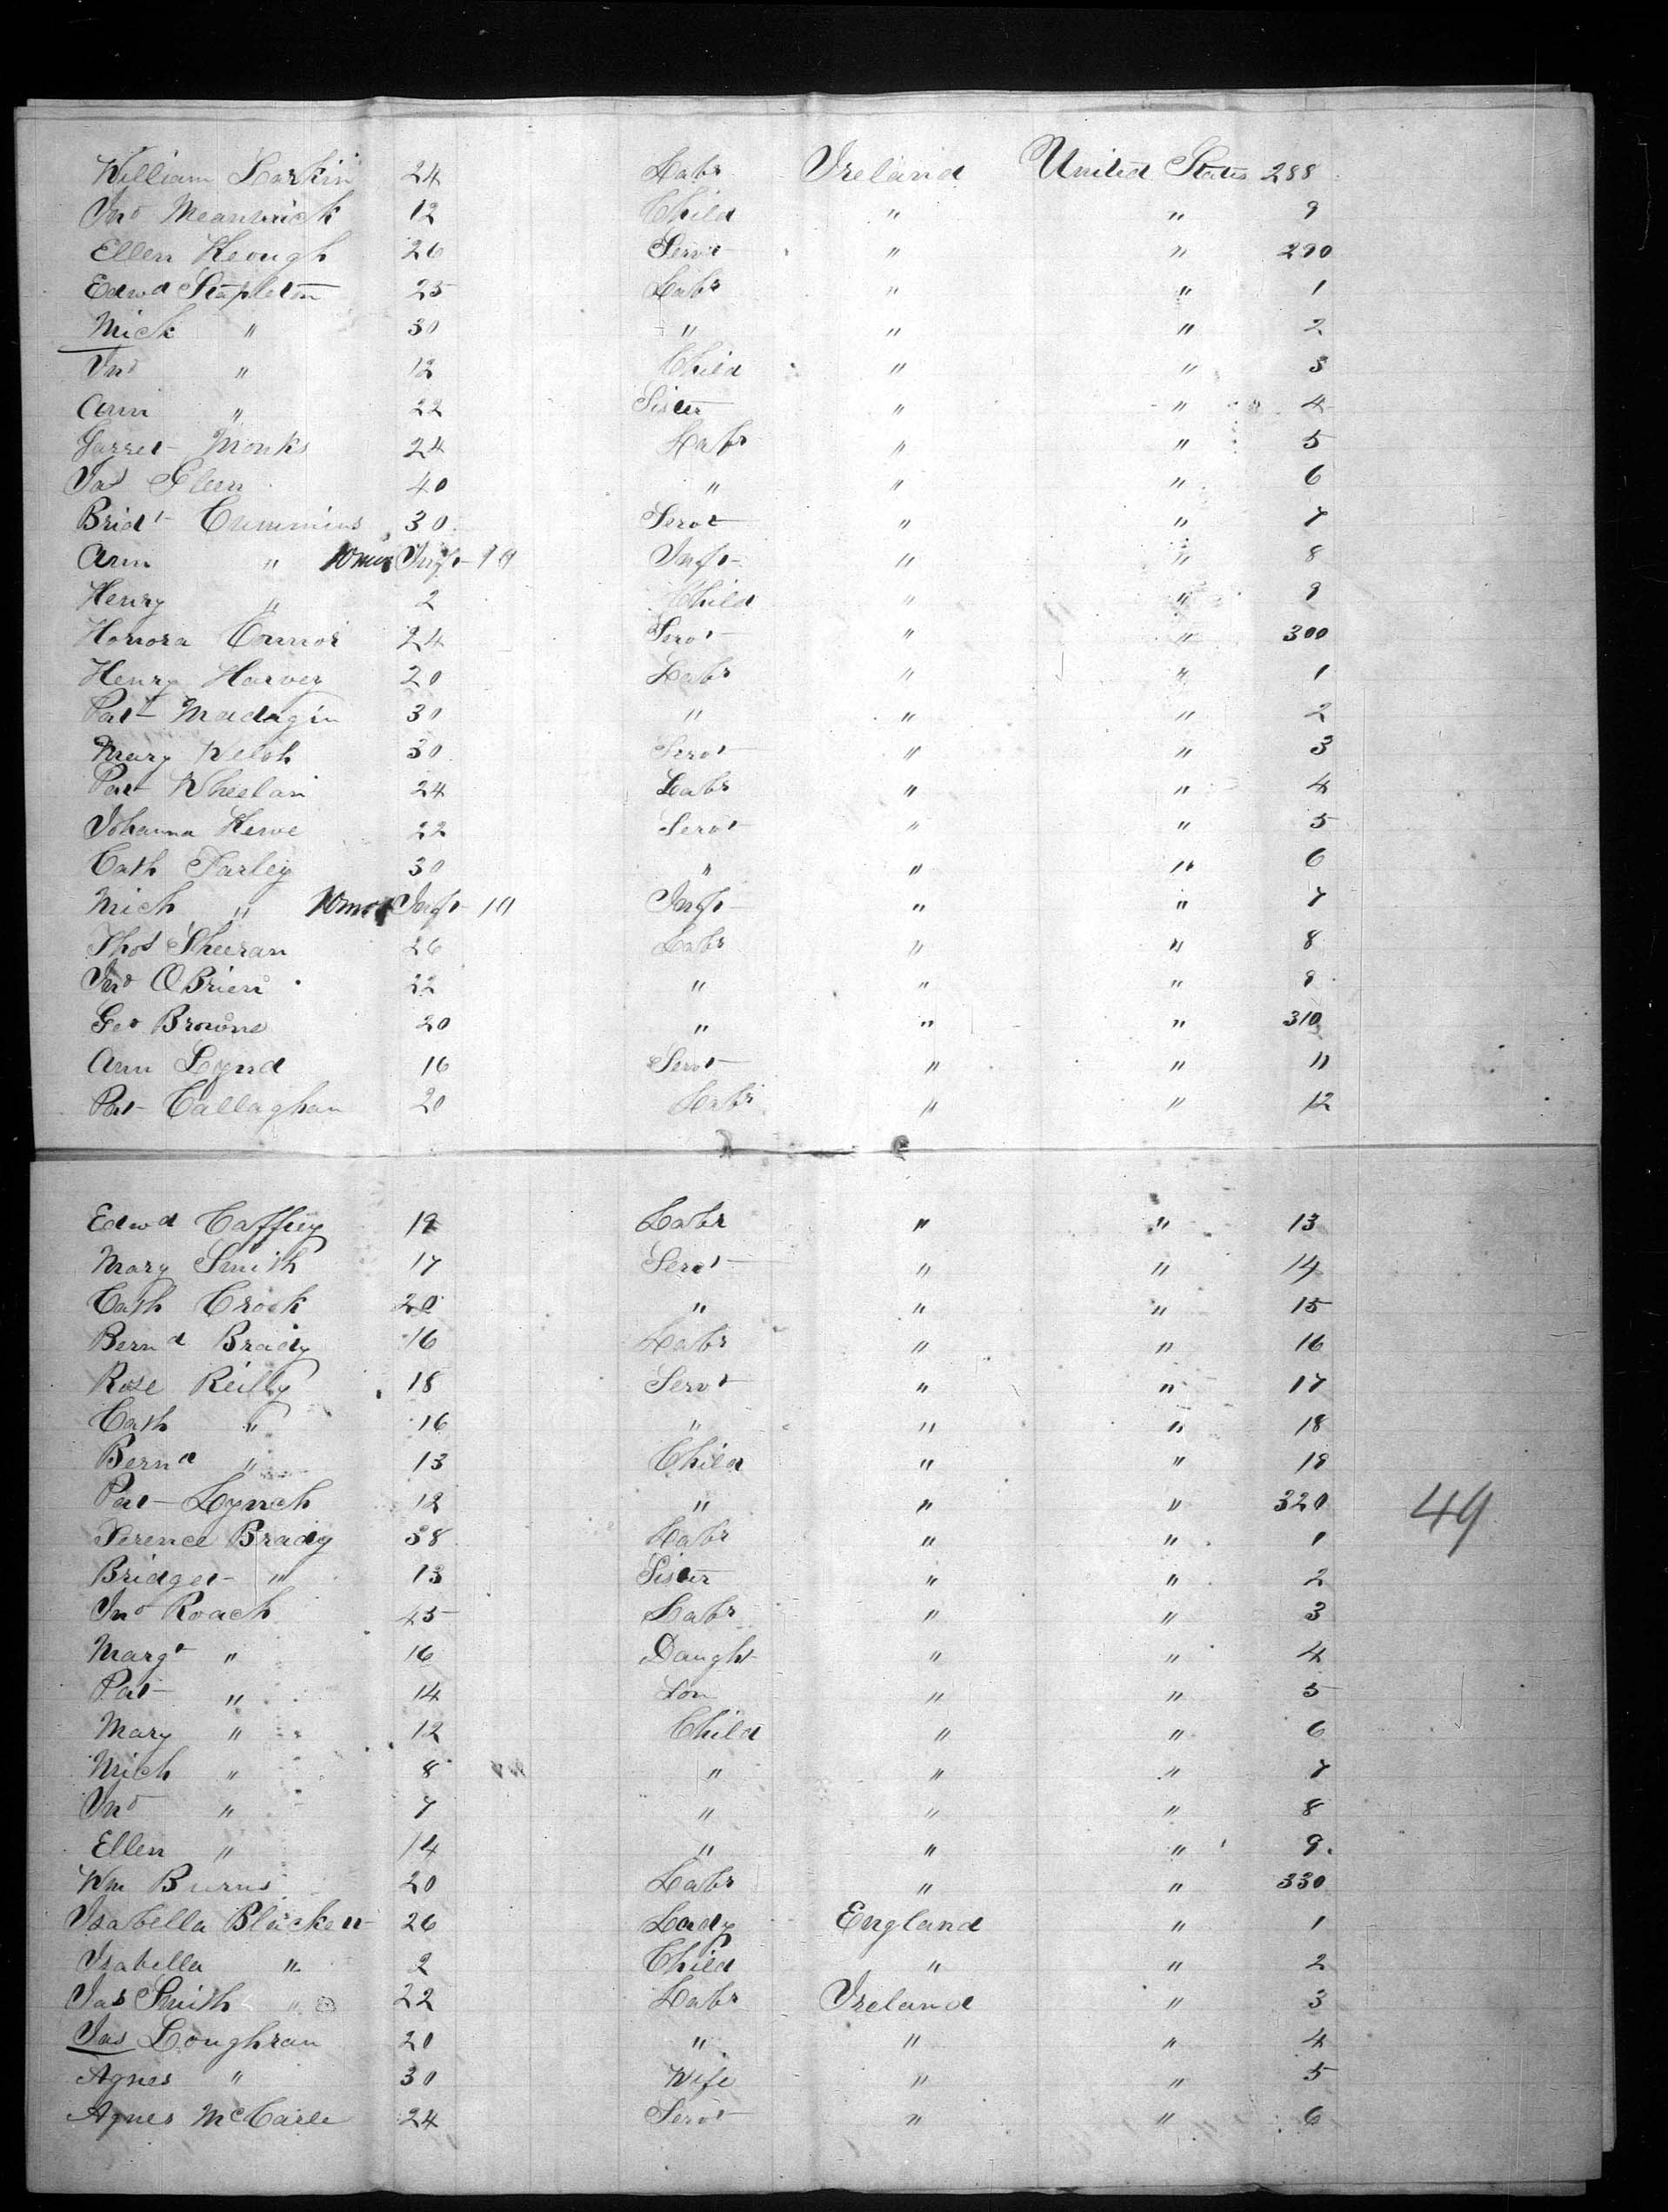 William Larkin 24 Labr Ireland United States 288
Jno Meanwick 12 Child " " 9
Ellen Keough 26 Servt " " 290
Edwd Stapleton 25 Labr " " 1
Mick " 30 " " " 2
Jno " 12 Child " " 3
Ann " 22 Sister " " 4
Garret Monks 24 Labr " " 5
Jas Glen 40 " " " 6
Bridt Cummins 30 Servt " " 7
Ann " 10mos Inft 10 Inft " " 8
Henry " 2 Child " " 9
Honora Connor 24 Servt " " 300
Henry Harvey 20 Labr " " 1
Pat Madigin 30 " " " 2
Mary Welsh 30 Servt " " 3
Pat Wheelan 24 Labr " " 4
Johanna 22 Servt " " 5
Cath Farley 30 " " " 6
Mich " 10mos Inft 10 Inft " " 7
Thos Sheeran 26 Labr " " 8
Jno OBrien 22 " " " 9
Geo Browne 20 " " " 310
Ann Lynd 16 Servt " " 11
Pat Callaghan 20 Labr " " 12
Edwd Caffrey 19 Labr " " 13
Mary Smith 17 Servt " " 14
Cath Crook 20 " " " 15
Bernd Brady 16 Labr " " 16
Rose Reilly 18 Servt " " 17
Cath " 16 " " " 18
Bernd " 13 Child " " 19
Pat Lynch 12 " " " 320
49
Terence Brady 38 Labr " " 1
Bridget " 13 Sister " " 2
Jno Roach 45 Labr " " 3
Margt " 16 Daught " " 4
Pat " 14 Son " " 5
Mary " 12 Child " " 6
Mich " 8 " " " 7
Jno " 7 " " " 8
Ellen " 14 " " " 9
Wm Burns 20 Labr " " 330
Isabella 26 Lady England " 1
Isabella " 2 Child " " 2
Jas Smith 22 Labr Ireland " 3
Jas Loughran 20 " " " 4
Agnes " 30 Wife " " 5
Agnes McCarle 24 Servt " " 6